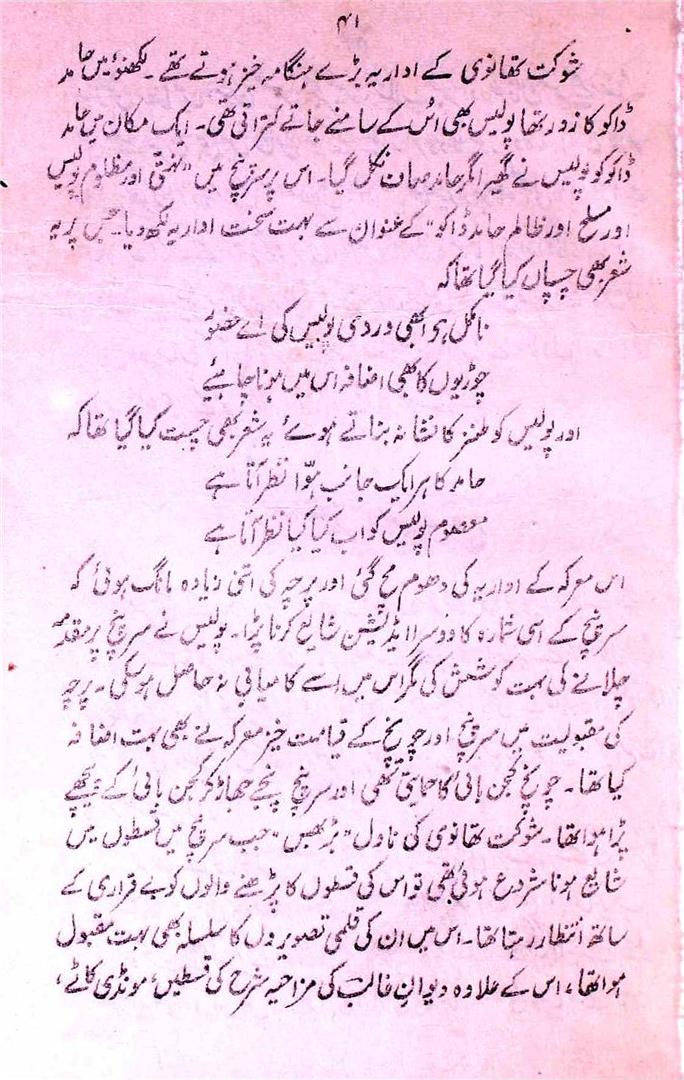 ۴۱
شوکت تھانوی کے اداریہ بڑے ہنگامہ خیز ہوتے تھے۔ لکھنؤ میں حامد
ڈاکو کا زور تھا پولیس بھی اس کے سامنے جاتے کتراتی تھی۔ ایک مکان میں حامد
ڈاکو کو پولیس نے گھیرا مگر حامد صاف نکل گیا۔ اس پر سرپنچ میں "نہتی اور مظلوم پولیس
اور مسلح اور ظالم حامد ڈاکو" کے عنوان سے بہت سخت اداریہ لکھ دیا۔ جس پر یہ
شعر بھی چسپاں کیا گیا تھا کہ
نامکمل ہے ابھی وردی پولیس کی اے حضور
چوڑیوں کا بھی اضافہ اس میں ہونا چاہیئے
اور پولیس کو طنز کا نشانہ بناتے ہوئے یہ شعر بھی چست کیا گیا تھا کہ
حامد کا ہر ایک جانب ہوّا نظر آتا ہے
معصوم پولیس کو اب کیا کیا نظر آتا ہے
اس معرکہ کے اداریہ کی دھوم مچ گئی اور پرچہ کی اتنی زیادہ مانگ ہوئی کہ
سرپنچ کے اسی شمارہ کا دوسرا ایڈیشن شایع کرنا پڑا۔ پولیس نے سرپنچ پر مقدمہ
چلانے کی بہت کوشش کی مگر اس میں اسے کامیابی نہ حاصل ہو سکی۔ پرچہ
کی مقبولیت میں سرپنچ اور چونچ کے قیامت خیز معرکہ نے بھی بہت اضافہ
کیا تھا۔ چونچ کجن بائی کا حمایتی تھی اور سرپنچ پنجے جھاڑ کر کجن بائی کے پیچھے
پڑا ہوا تھا۔ شوکت تھانوی کی ناول "بڑبھس" جب سرپنچ میں قسطوں میں
شایع ہونا شروع ہوئی تھی تو اس کی قسطوں کا پڑھنے والوں کو بے قراری کے
ساتھ انتظار رہتا تھا۔ اس میں ان کی قلمی تصویروں کا سلسلہ بھی بہت مقبول
ہوا تھا، اس کے علاوہ دیوانِ غالب کی مزاحیہ شرح کی قسطیں، مونڈی کاٹے،